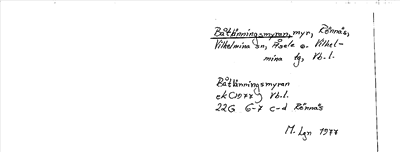 Båtlänningsmyran, myr, Rönnäs,
Vilhelmina sn, Åsele o. Vilhel-
mina tg, Vb.l.
Båtlänningsmyran
ek(1977) Vb.l.
22G 6-7 c-d Rönnäs
M. Lgn 1977